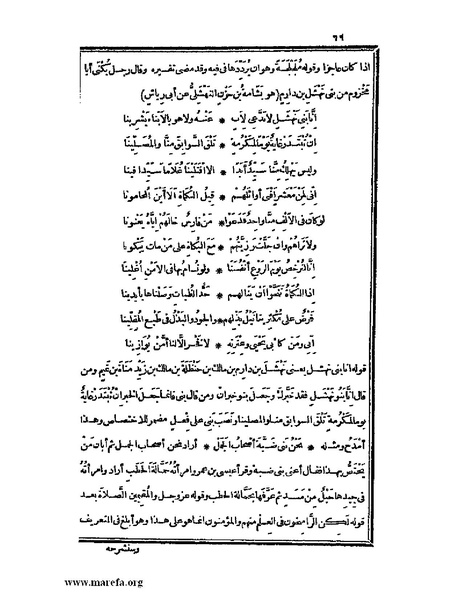 ٦٦
اذا كان عاجزا وقوله ململمة وهو ان يرددها في فيه وقد مضى تفسيره وقال رجل يكنى أبا
مخزوم من بني نهشل بن دارم (هو بشامة بن حزن النهشلي عن أبي رياش)
إنا بني نهشل لا ندعي لأب * عنه ولا هو بالأبناء يشرينا
إن تبتدر غاية يوما لمكرمة * تلق السوابق منا والمصلينا
وليس يهلك منا سيد أبدا * الا افتلينا غلاما سيدا فينا
إني لمن معشر أفنى أوائلهم * قيل الكماة ألا أين المحامونا
لو كان في الألف منا واحد فدعوا * من فارس خالهم إياه يعنونا
ولا تراهم وان جلت رزيتهم * مع البكاة على من مات يبكونا
إنا لنرخص يوم الروع أنفسنا * ولو نسام بها في الأمن أغلينا
اذا الكماة تنحوا أن ينالهم * حد الظبات وصلناها بأيدينا
إني ومن كأبي يحيى وعترته * لا فخر إلا لنا أمن يوازينا
قوله انا بني نهشل يعني نهشل بن دارم بن مالك بن حنظلة بن مالك بن زيد مناة بن تميم ومن
قال إنا بنو نهشل فقد خبرك وجعل بنو خبر ان ومن قال بني فانما جعل الخبر ان تبتدر غاية
يوما لمكرمة تلق السوابق منا والمصلينا ونصب بني على فعل مضمر للاختصاص وهذا
أمدح ومثله * نحن بني ضبة أصحاب الجمل * أراد نحن أصحاب الجمل ثم أبان من
يختص بهذا فقال أعني بني ضبة وقرأ عيسى بن عمر وامرأته حمالة الحطب أراد وامرأته
في جيدها حبل من مسد ثم عرفها بحمالة الحطب وقوله عز وجل والمقيمين الصلاة بعد
قوله لكن الراسخون في العلم منهم والمؤمنون انما هو على هذا وهو أبلغ في التعريف
وسنشرحه
www.marefa.org